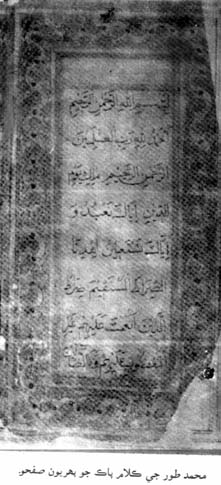 بسم الله الرحمن الرحيم
الحمد لله رب العلمين
الرحمن الرحيم ملك يوم
الدين اياك نعبد و
اياك نستعين اهدنا
الصراط المستقيم صراط
الذين انعمت عليهم غير
المغضوب عليهم ولا الضا
محمد طور جي ڪلام پاڪ جو پھريون صفحو.